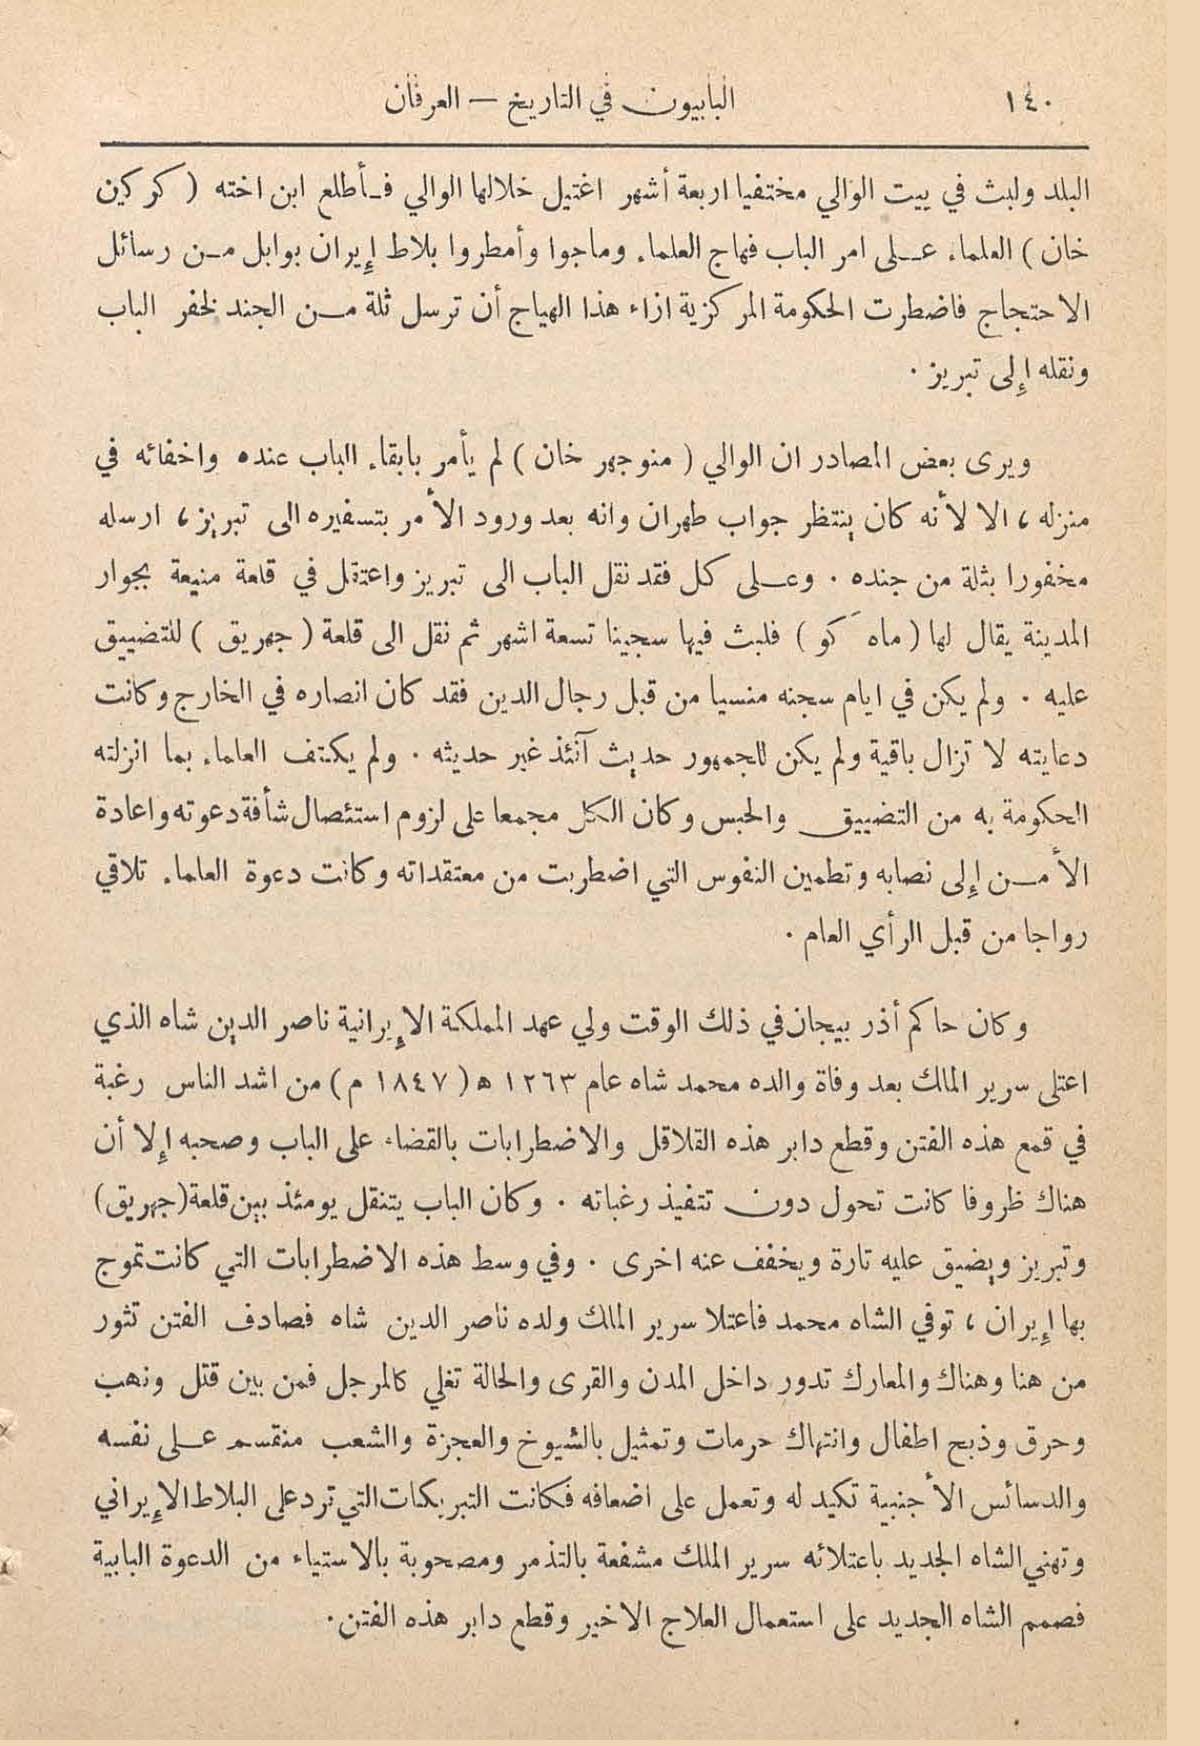 ١٤٠
البابيون في التاريخ — العرفان
البلد ولبث في بيت الوالي مختفيا اربعة أشهر اغتيل خلالها الوالي فـأطلع ابن اخته ( كوكين
خان ) العلماء عـلى امر الباب فهاج العلماء وماجوا وأمطروا بلاط إيران بوابل مـن رسائل
الاحتجاج فاضطرت الحكومة المركزية ازاء هذا الهياج أن ترسل ثلة مـن الجند لخفر الباب
ونقله إلى تبريز ٠
ويرى بعض المصادر ان الوالي ( منوجهر خان ) لم يأمر بابقاء الباب عنده واخفائه في
منزله ، الا لأنه كان ينتظر جواب طهران وانه بعد ورود الأمر بتسفيره الى تبريز ، ارسله
مخفورا بثلة من جنده ٠ وعـلى كل فقد نقل الباب الى تبريز واعتقل في قلعة منيعة بجوار
المدينة يقال لها ( ماه كو ) فلبث فيها سجينا تسعة اشهر ثم نقل الى قلعة ( جهريق ) للتضييق
عليه ٠ ولم يكن في ايام سجنه منسيا من قبل رجال الدين فقد كان انصاره في الخارج وكانت
دعايته لا تزال باقية ولم يكن للجمهور حديث آنئذ غير حديثه ٠ ولم يكتف العلماء بما انزلته
الحكومة به من التضييق والحبس وكان الكل مجمعا على لزوم استئصال شأفة دعوته واعادة
الأمـن إلى نصابه وتطمين النفوس التي اضطربت من معتقداته وكانت دعوة العلماء تلاقي
رواجا من قبل الرأي العام ٠
وكان حاكم أذر بيجان في ذلك الوقت ولي عهد المملكة الإيرانية ناصر الدين شاه الذي
اعتلى سرير الملك بعد وفاة والده محمد شاه عام ١٢٦٣ ه ( ١٨٤٧ م ) من اشد الناس رغبة
في قمع هذه الفتن وقطع دابر هذه القلاقل والاضطرابات بالقضاء على الباب وصحبه إلا أن
هناك ظروفا كانت تحول دون تتفيذ رغباته ٠ وكان الباب يتنقل يومئذ بين قلعة (جهريق)
وتبريز ويضيق عليه تارة ويخفف عنه اخرى ٠ وفي وسط هذه الاضطرابات التي كانت تموج
بها إيران ، توفي الشاه محمد فاعتلا سرير الملك ولده ناصر الدين شاه فصادف الفتن تثور
من هنا وهناك والمعارك تدور داخل المدن والقرى والحالة تغلي كالمرجل فمن بين قتل ونهب
وحرق وذبح اطفال وانتهاك حرمات وتمثيل بالشيوخ والعجزة والشعب منقسم عـلى نفسه
والدسائس الأجنبية تكيد له وتعمل على اضعافه فكانت التبريكات التي ترد على البلاط الإيراني
وتهني الشاه الجديد باعتلائه سرير الملك مشفعة بالتذمر ومصحوبة بالاستياء من الدعوة البابية
فصمم الشاه الجديد على استعمال العلاج الاخير وقطع دابر هذه الفتن ٠